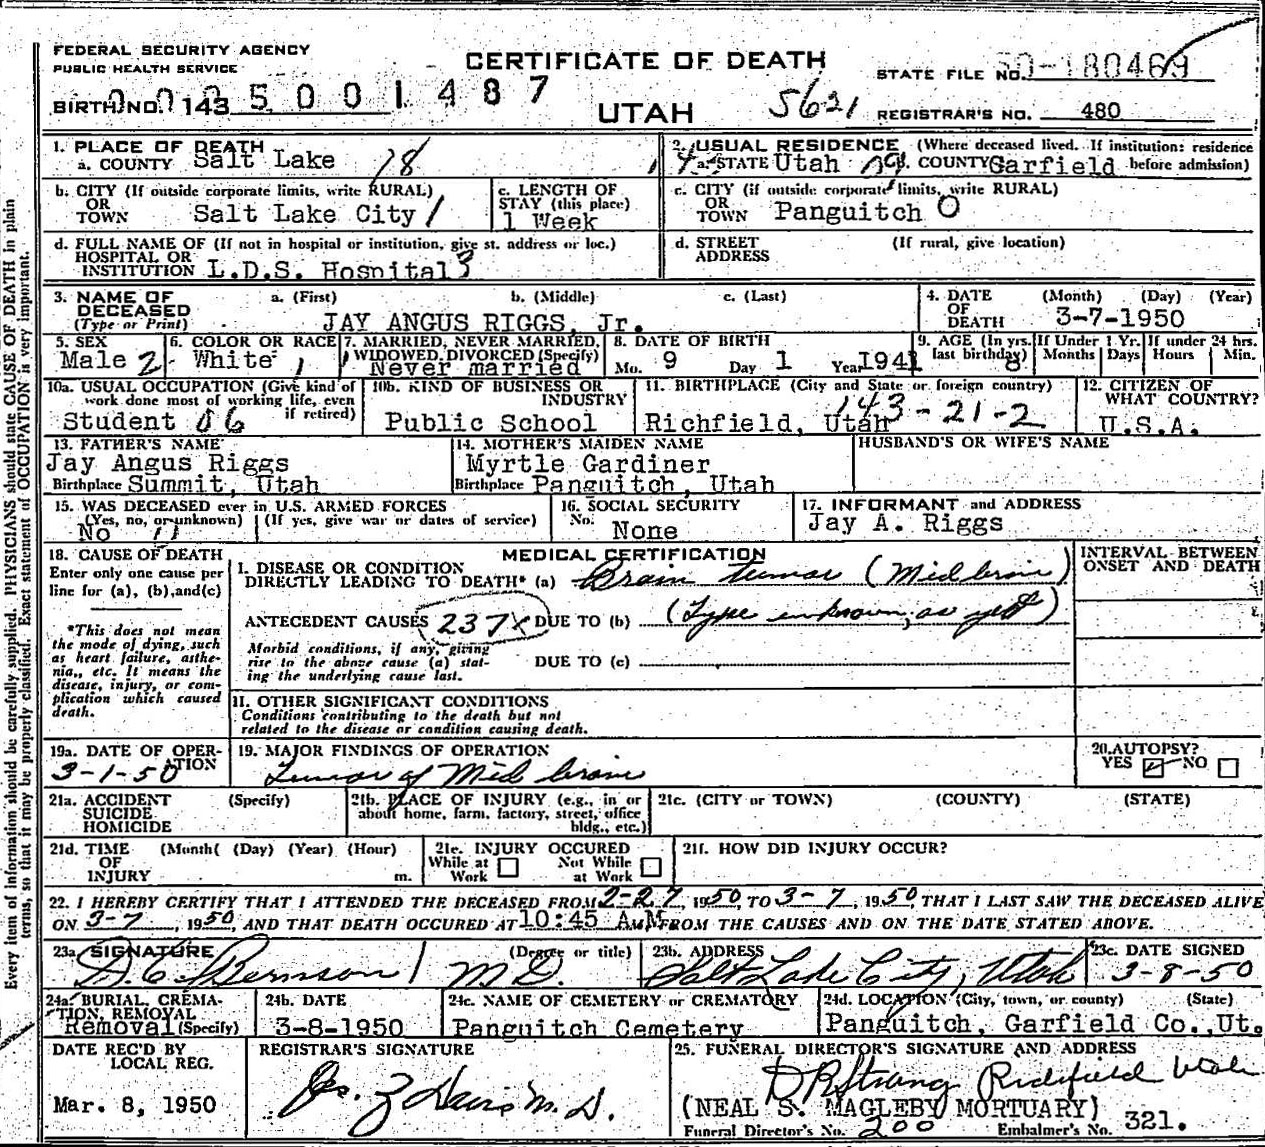 FEDERAL SECURITY AGENCY
PUBLIC HEALTH SERVICE
CERTIFICATE OF DEATH
STATE FILE NO. 50-180469
BIRTH NO. 143 5001487
UTAH
5621
REGISTRAR'S NO. 480
1. PLACE OF DEATH
a. COUNTY Salt Lake 18
2. USUAL RESIDENCE (Where deceased lived. If institution: residence before admission)
a. STATE Utah b. COUNTY Garfield
b. CITY (If outside corporate limits, write RURAL)
OR TOWN Salt Lake City
c. LENGTH OF STAY (this place)
1 Week
c. CITY (if outside corporate limits, write RURAL)
OR TOWN Panguitch
d. FULL NAME OF (If not in hospital or institution, give st. address or loc.)
HOSPITAL OR INSTITUTION L.D.S. Hospital 3
d. STREET ADDRESS (If rural, give location)
3. NAME OF DECEASED (Type or Print)
a. (First) b. (Middle) c. (Last)
JAY ANGUS RIGGS, Jr.
4. DATE OF DEATH (Month) (Day) (Year)
3-7-1950
5. SEX
Male 2
6. COLOR OR RACE
White 1
7. MARRIED, NEVER MARRIED, WIDOWED, DIVORCED (Specify)
Never married
8. DATE OF BIRTH
Mo. 9 Day 1 Year 1941
9. AGE (In yrs. last birthday) 8
If Under 1 Yr. Months Days
If under 24 hrs. Hours Min.
10a. USUAL OCCUPATION (Give kind of work done most of working life, even if retired)
Student 06
10b. KIND OF BUSINESS OR INDUSTRY
Public School
11. BIRTHPLACE (City and State or foreign country)
Richfield, Utah 143-21-2
12. CITIZEN OF WHAT COUNTRY?
U.S.A.
13. FATHER'S NAME
Jay Angus Riggs
Birthplace Summit, Utah
14. MOTHER'S MAIDEN NAME
Myrtle Gardiner
Birthplace Panguitch, Utah
HUSBAND'S OR WIFE'S NAME
15. WAS DECEASED ever in U.S. ARMED FORCES
(Yes, no, or unknown) (If yes, give war or dates of service)
No
16. SOCIAL SECURITY
No. None
17. INFORMANT and ADDRESS
Jay A. Riggs
18. CAUSE OF DEATH
Enter only one cause per line for (a), (b), and (c)
*This does not mean the mode of dying, such as heart failure, asthenia, etc. It means the disease, injury, or complication which caused death.
MEDICAL CERTIFICATION
INTERVAL BETWEEN ONSET AND DEATH
I. DISEASE OR CONDITION
DIRECTLY LEADING TO DEATH* (a) Brain tumor (Midbrain)
ANTECEDENT CAUSES 237X DUE TO (b) (Type unknown, as yet)
Morbid conditions, if any, giving rise to the above cause (a) stating the underlying cause last.
DUE TO (c)
II. OTHER SIGNIFICANT CONDITIONS
Conditions contributing to the death but not related to the disease or condition causing death.
19a. DATE OF OPERATION
3-1-50
19. MAJOR FINDINGS OF OPERATION
Tumor of Mid brain
20. AUTOPSY?
YES NO
21a. ACCIDENT SUICIDE HOMICIDE (Specify)
21b. PLACE OF INJURY (e.g., in or about home, farm, factory, street, office bldg., etc.)
21c. (CITY or TOWN) (COUNTY) (STATE)
21d. TIME OF INJURY (Month( (Day) (Year) (Hour) m.
21e. INJURY OCCURED
While at Work Not While at Work
21f. HOW DID INJURY OCCUR?
22. I HEREBY CERTIFY THAT I ATTENDED THE DECEASED FROM 2-27, 1950, TO 3-7, 1950 THAT I LAST SAW THE DECEASED ALIVE
ON 3-7, 1950, AND THAT DEATH OCCURED AT 10:45 A.M. FROM THE CAUSES AND ON THE DATE STATED ABOVE.
23a. SIGNATURE (Degree or title)
M.D.
23b. ADDRESS
Salt Lake City, Utah
23c. DATE SIGNED
3-8-50
24a. BURIAL, CREMATION, REMOVAL (Specify)
Removal
24b. DATE
3-8-1950
24c. NAME OF CEMETERY or CREMATORY
Panguitch Cemetery
24d. LOCATION (City, town, or county) (State)
Panguitch, Garfield Co., Ut.
DATE REC'D BY LOCAL REG.
Mar. 8, 1950
REGISTRAR'S SIGNATURE
M.D.
25. FUNERAL DIRECTOR'S SIGNATURE AND ADDRESS
Richfield Utah
(NEAL S. MAGLEBY MORTUARY)
Funeral Director's No. 200 Embalmer's No. 321.
Every item of information should be carefully supplied. PHYSICIANS should state CAUSE OF DEATH in plain
terms, so that it may be properly classified. Exact statement of OCCUPATION is very important.